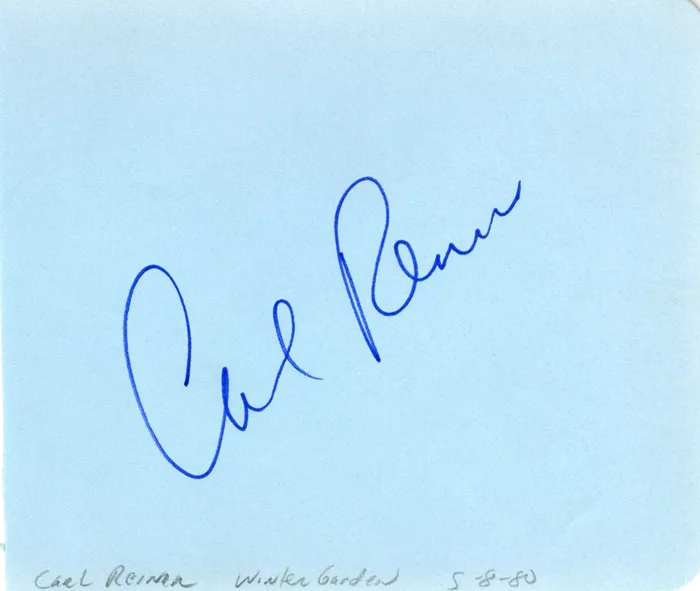 Carl Reiner
Carl Reiner Winter Garden 5-8-80